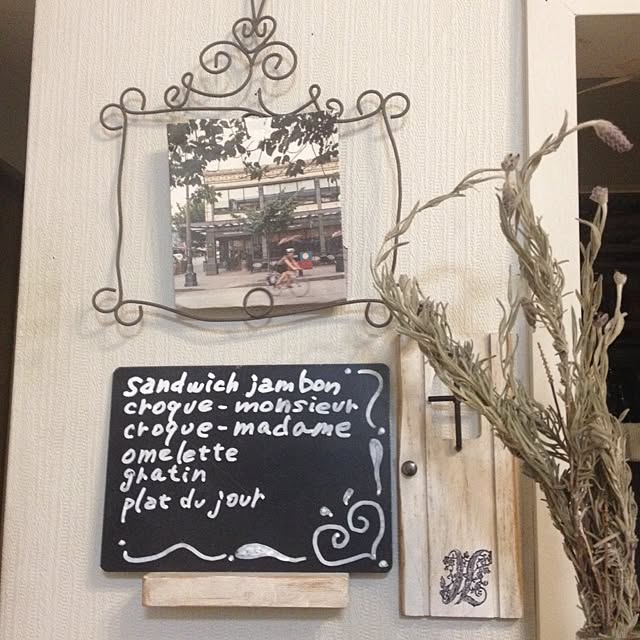 sandwich jambon
croque-monsieur
croque-madame
omelette
gratin
plat du jour